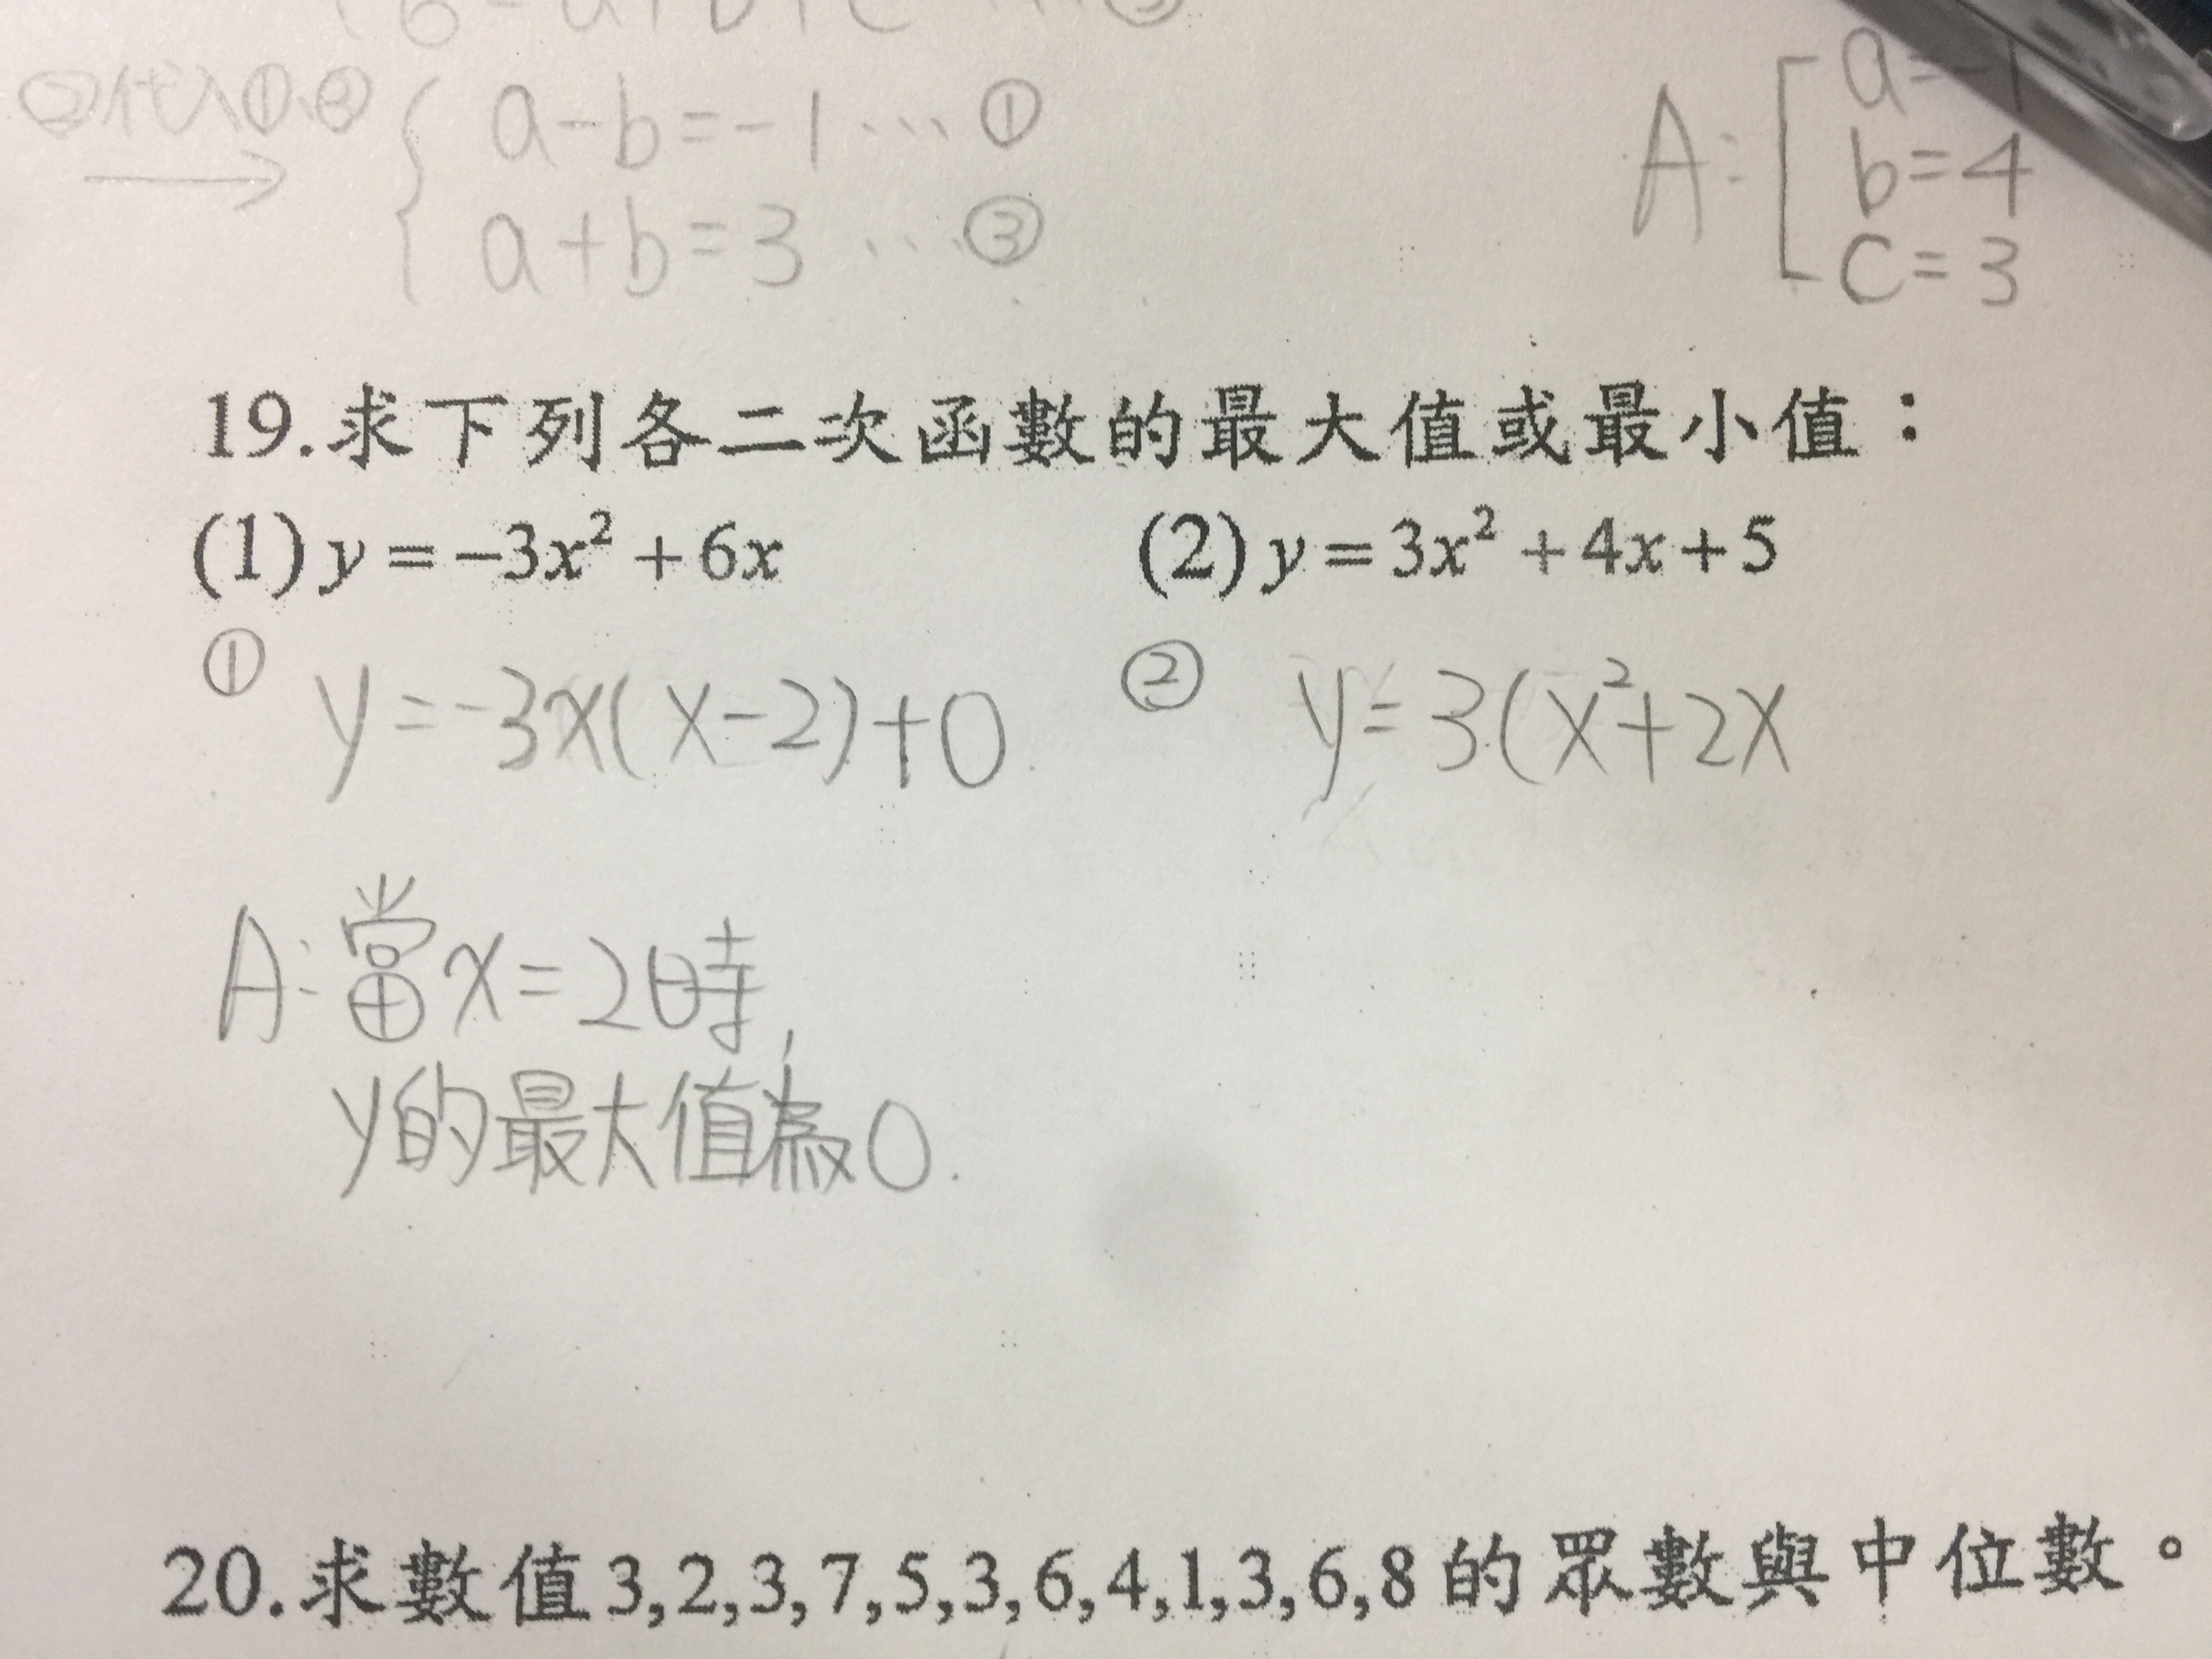 ②代入①、③ a-b=-1…①
→ a+b=3…③
A: a=-1
b=4
c=3
19.求下列各二次函數的最大值或最小值：
(1) y=-3x²+6x (2) y=3x²+4x+5
① y=-3x(x-2)+0 ② y=3(x²+2x
A:當x=2時,
y的最大值為0.
20.求數值3,2,3,7,5,3,6,4,1,3,6,8的眾數與中位數。